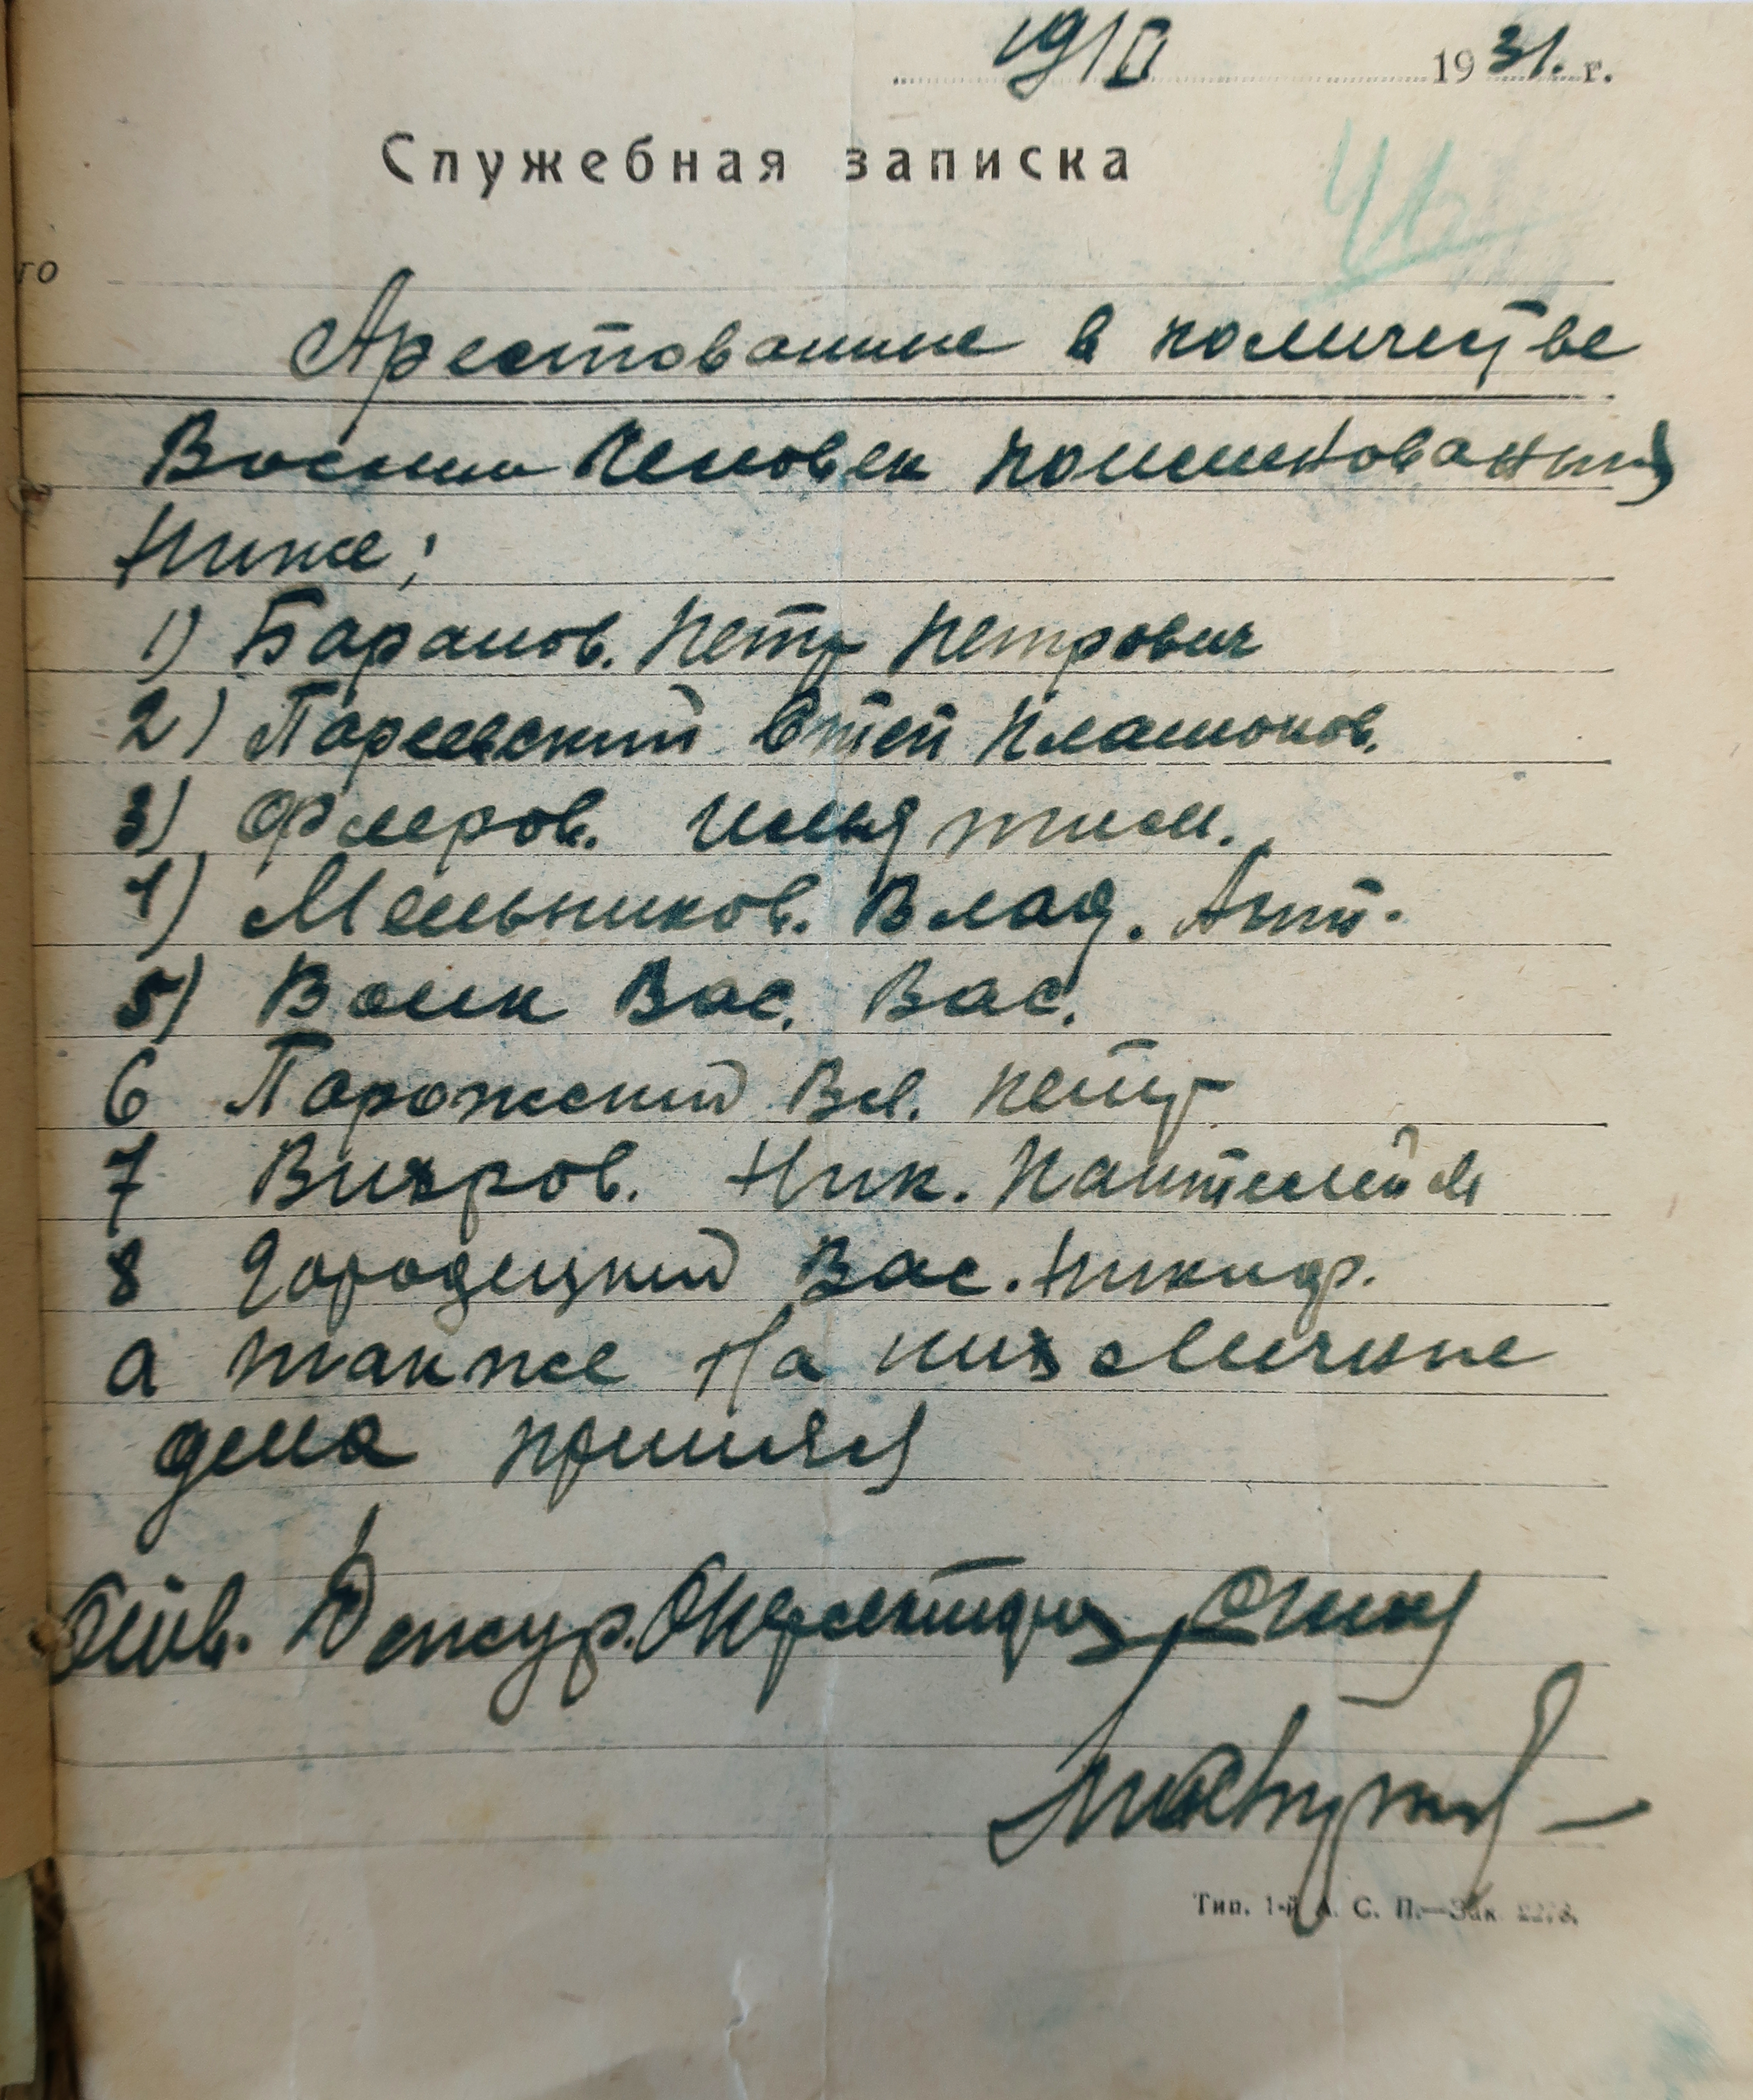 19/II 1931. г.
Служебная записка
42
го
Арестованные в количестве
Восьми человек поименованных
Ниже;
1) Баранов. Петр Петрович
2) Платонов.
3) Флеров. Илья тим.
4) Мельников. Влад. Ант.
5) Волк Вас. Вас.
6 Порожский Вл. Петр
7 Вихров. Ник.
8 Городецкий Вас. Никиф.
а также На них Личные
дела принял
Дежур.
Тип. 1-й А. С. П.—Зак. 2278.